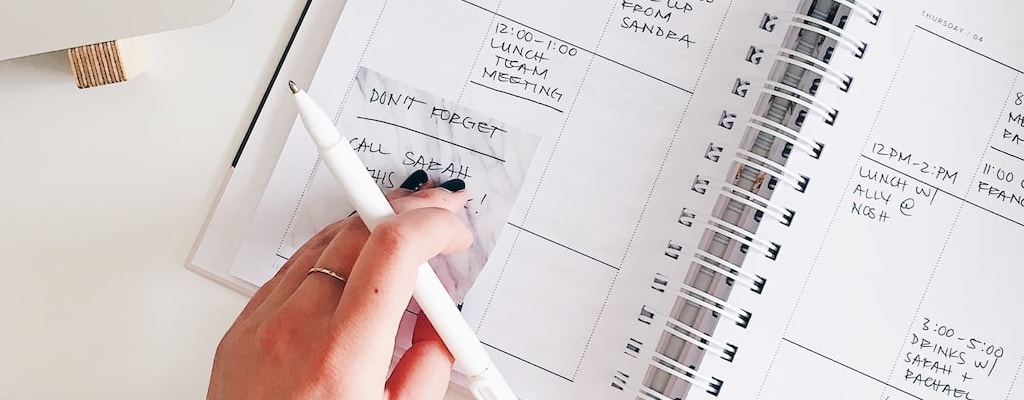 UP
FROM
SANDRA
12:00-1:00
LUNCH
TEAM
MEETING
DON'T FORGET
CALL SARAH
!
THURSDAY / 04
12PM-2PM
LUNCH W/
ALLY @
NOSH
8
11:00
3:00-5:00
DRINKS W/
SARAH +
RACHAEL